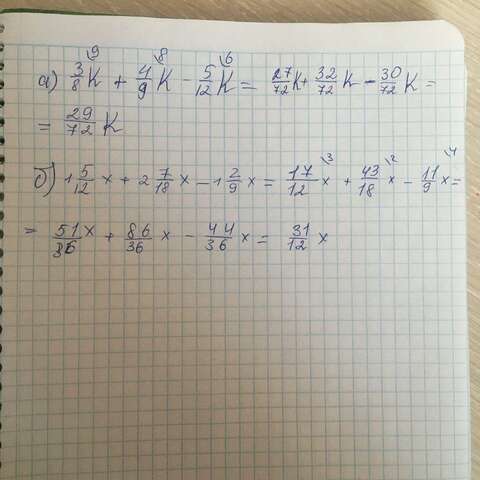 а) 3/8 K \9 + 4/9 K \8 - 5/12 K \6 = 27/72 K + 32/72 K - 30/72 K =
= 29/72 K
б) 1 5/12 x + 2 7/18 x - 1 2/9 x = 17/12 x \3 + 43/18 x \2 - 11/9 x \4 =
= 51/36 x + 86/36 x - 44/36 x = 31/12 x